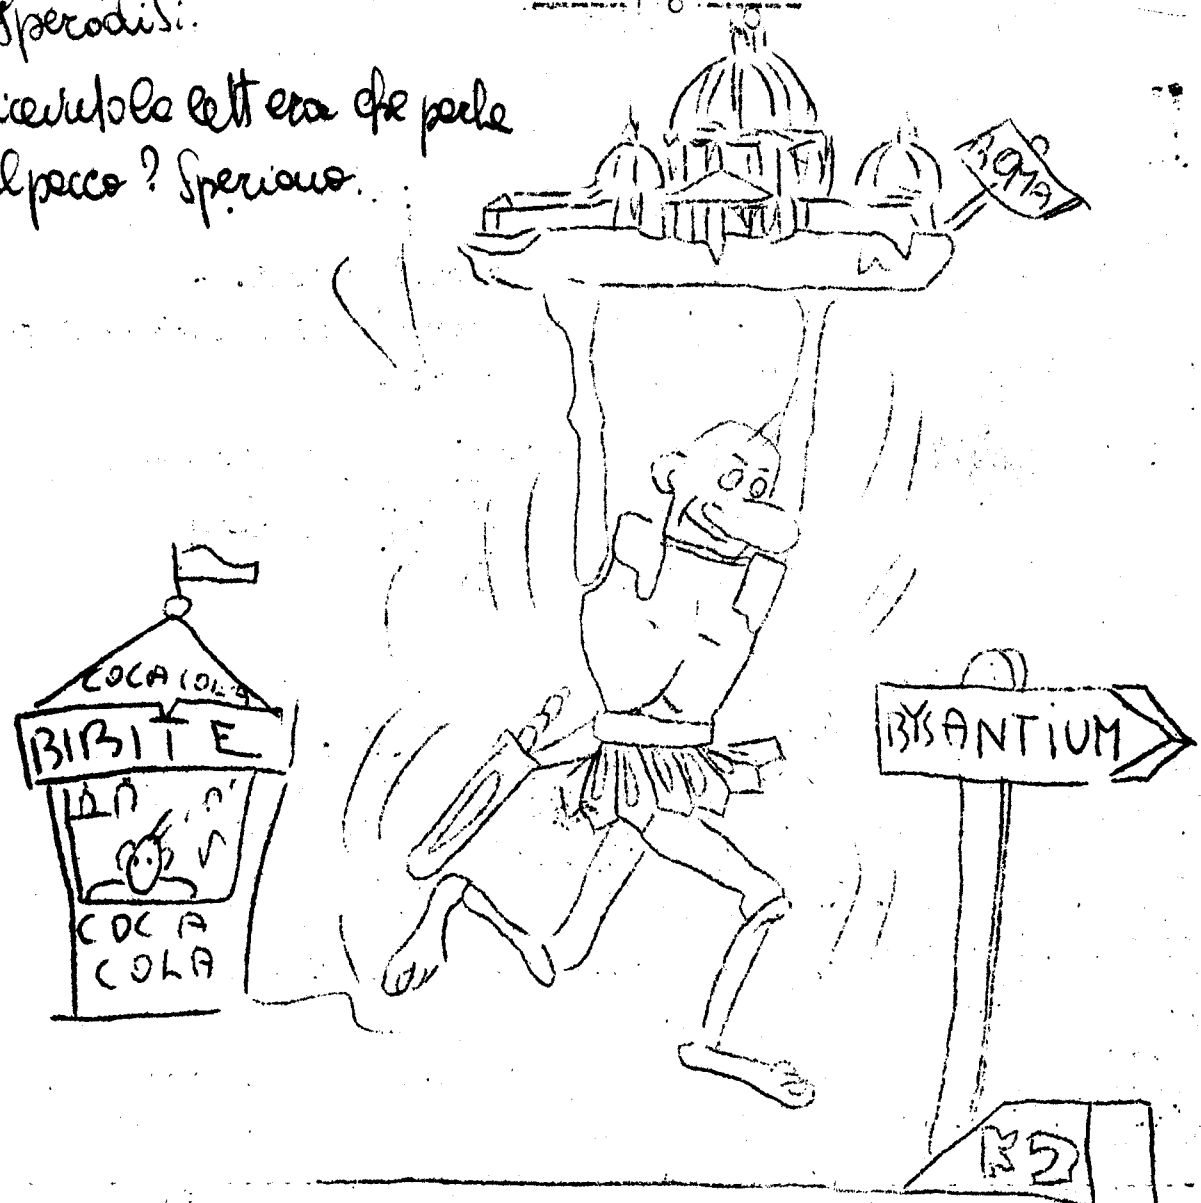 Sperodisi.
icevuto la lettera che parla
l pacco? Speriamo.
ROMA
COCA COLA
BIBITE
COCA
COLA
BYSANTIUM